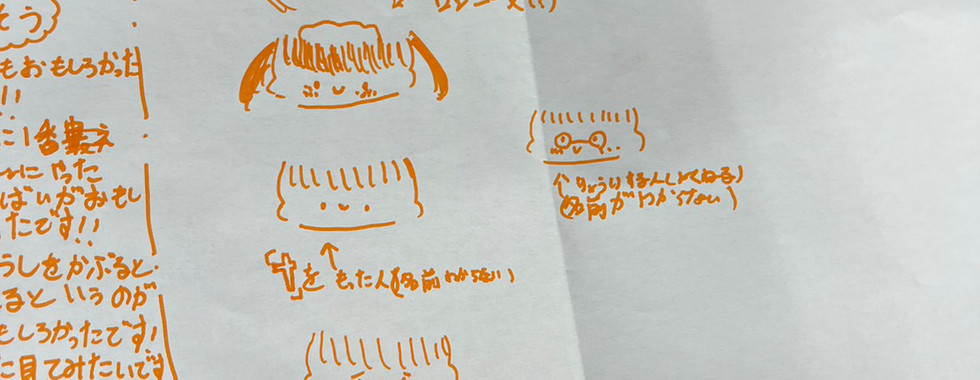 そう
もおもしろかった
!!
に1番
にやった
ばいがおもし
たです!!
うしをかぶると
るというのが
もしろかったです!
に見てみたいです
「十」を もった人(名前わからない)
りょうりする人
(名前がわからない)